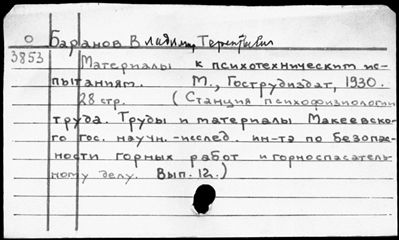 О Баранов Владимир Терентьевич
3853 Материалы к психотехническим ис-
пытаниям. М., Гострудиздат, 1930.
28 стр. (Станция психофизиологии
труда. Труды и материалы Макеевско-
го гос. научн.-исслед. ин-та по безопас-
ности горных работ и горноспасатель-
ному делу. Вып. 12.)